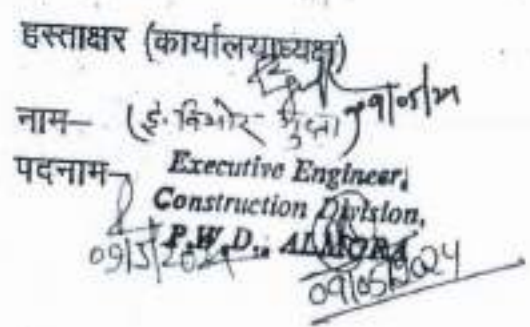 हस्ताक्षर (कार्यालयाध्यक्ष)
09/05/24
नाम— (ई.
पदनाम— Executive Engineer,
Construction Division,
P.W.D., ALMORA
09/5/2024
09/05/2024